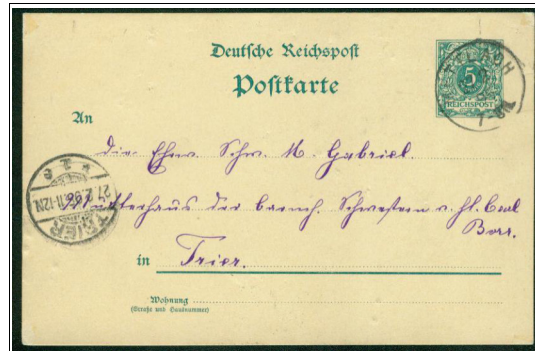 Deutsche Reichspost
Postkarte
5
REICHSPOST
An
die Ehrw. Schw. M. Gabriel.
Mutterhaus der barmh. Schwestern v. hl. Carl
Borr.
in Trier.
Wohnung
(Straße und Hausnummer)
TRIER
11-12N